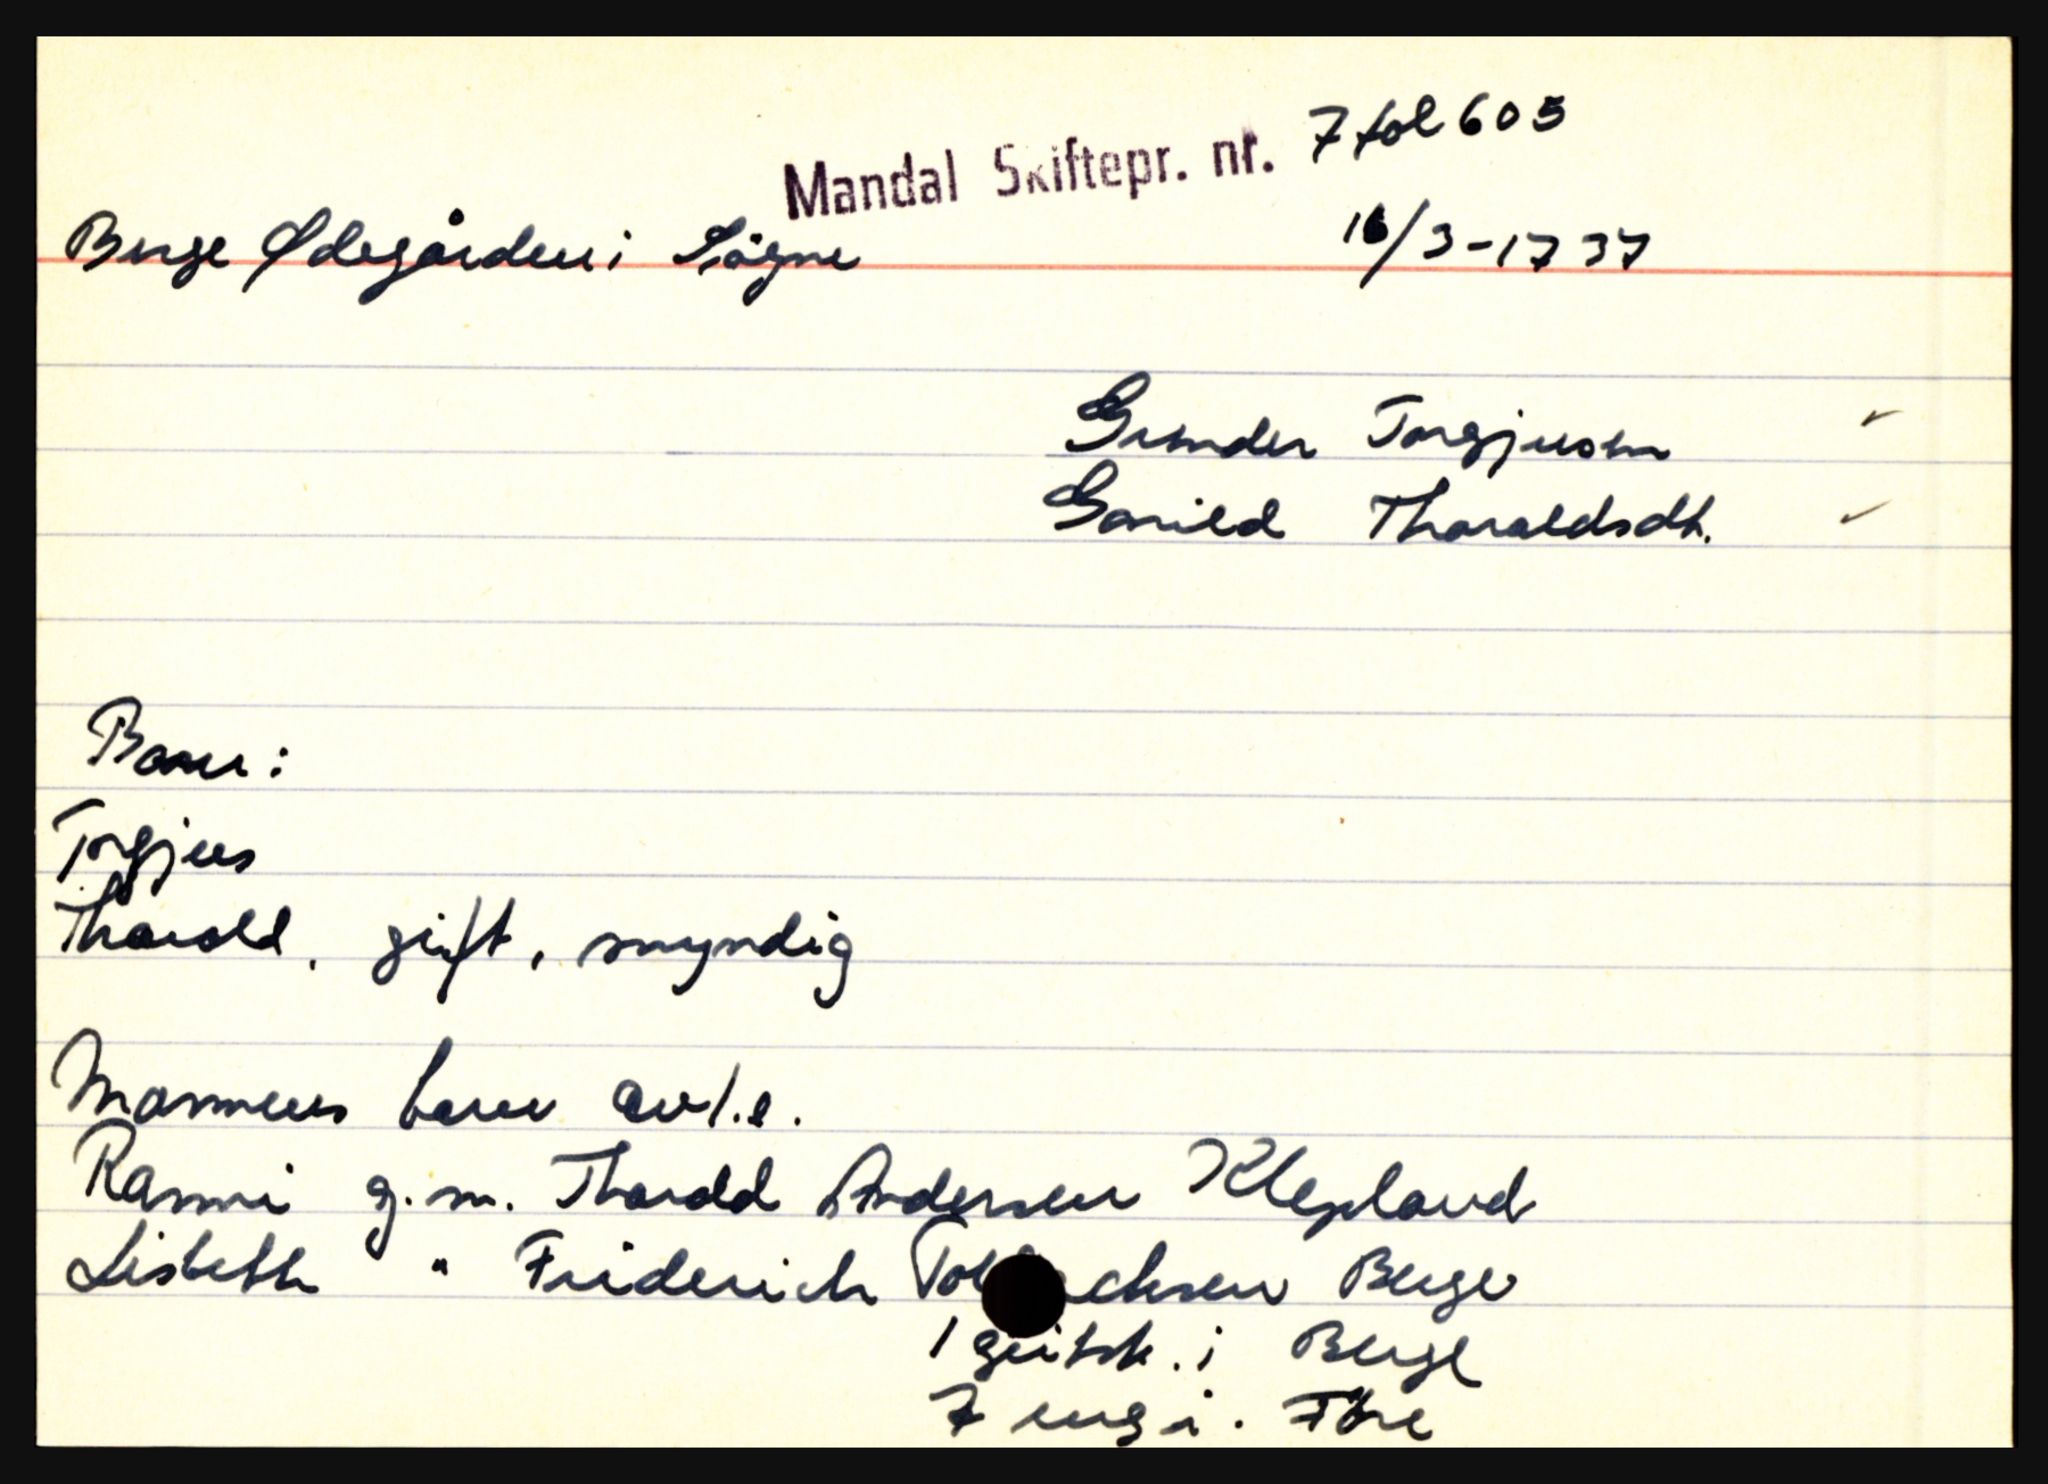 Mandal Skiftepr. nr. 7 fol 605
Berge Ødegården i Søgne 16/3-1737
Gunder Torgjusen
Gonild Tharaldsdt.
Barn:
Torgjus
Tharald, gift, myndig
Mannens barn av 1.e.
Ranni g.m. Tharald Andersen Klepland
Lisbeth " Friderich Berge
1 i Berge
7 i. Fore